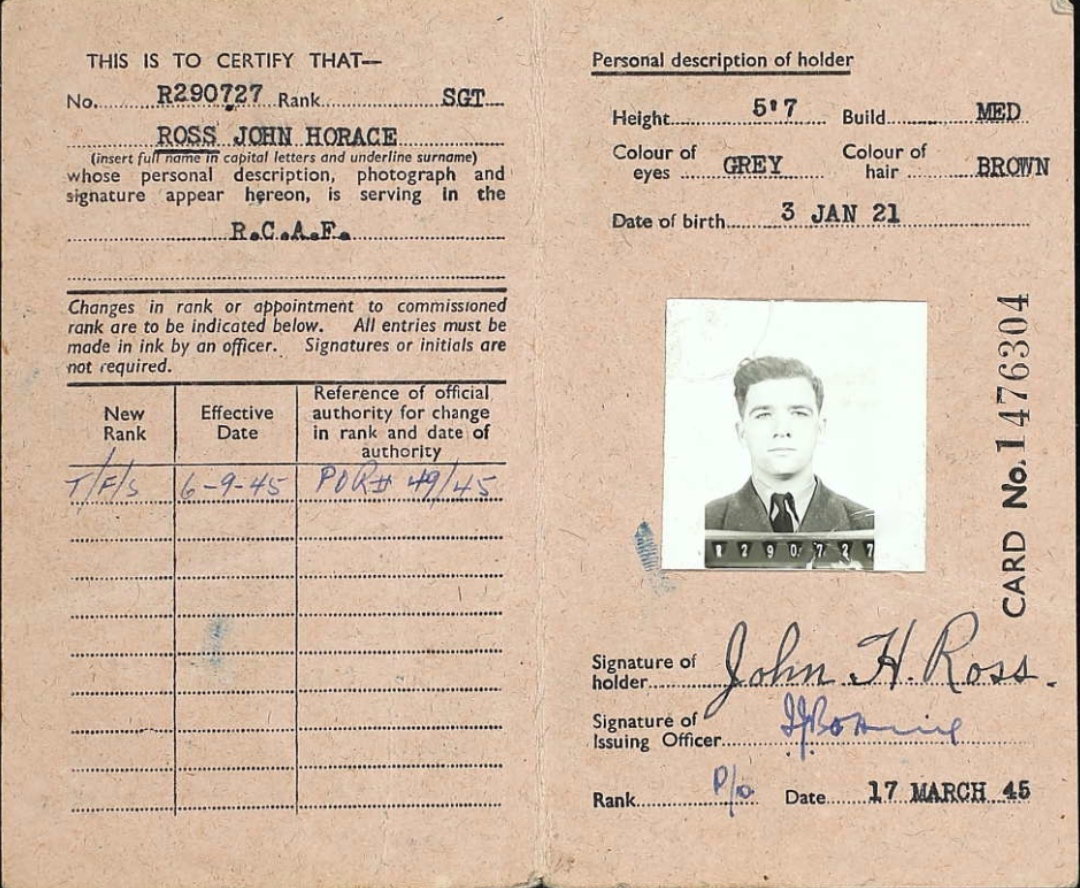 THIS IS TO CERTIFY THAT—
No. R290727 Rank SGT
ROSS JOHN HORACE
(insert full name in capital letters and underline surname)
whose personal description, photograph and
signature appear hereon, is serving in the
R.C.A.F.
Changes in rank or appointment to commissioned
rank are to be indicated below. All entries must be
made in ink by an officer. Signatures or initials are
not required.
New Rank
Effective Date
Reference of official authority for change in rank and date of authority
T/F/S 6-9-45 POR# 49/45
Personal description of holder
Height 5'7 Build MED
Colour of eyes GREY Colour of hair BROWN
Date of birth 3 JAN 21
R 2 9 0 7 2 7
CARD No. 1476304
Signature of holder John H. Ross.
Signature of Issuing Officer
Rank P/O Date 17 MARCH 45